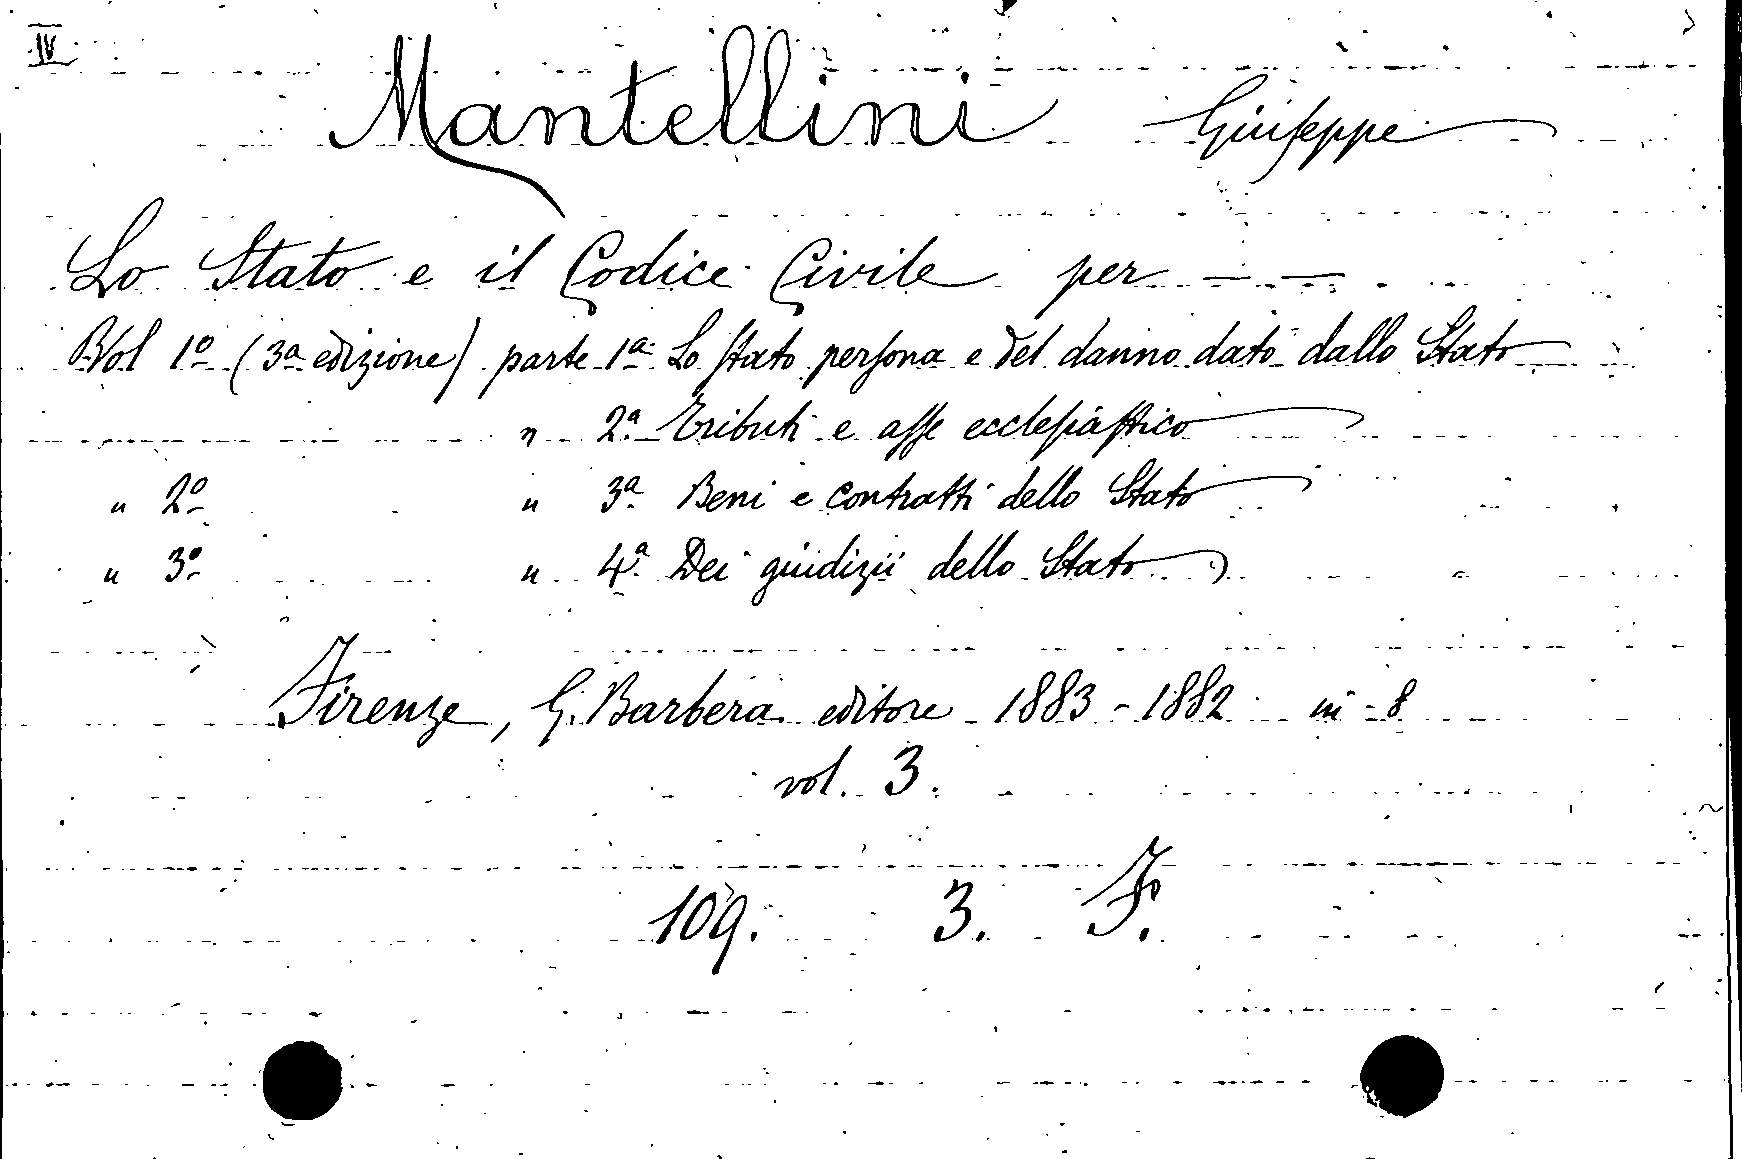 IV
Mantellini Giuseppe
Lo Stato e il Codice Civile per — —
Vol 1º (3ª edizione) parte 1ª Lo Stato persona e del danno dato dallo Stato
" 2ª Tributi e asse ecclesiastico
" 2º " 3ª Beni e contratti dello Stato
" 3º " 4ª Dei giudizii dello Stato
Firenze, G. Barbera editore 1883-1882 in-8
vol. 3.
109. 3. F.